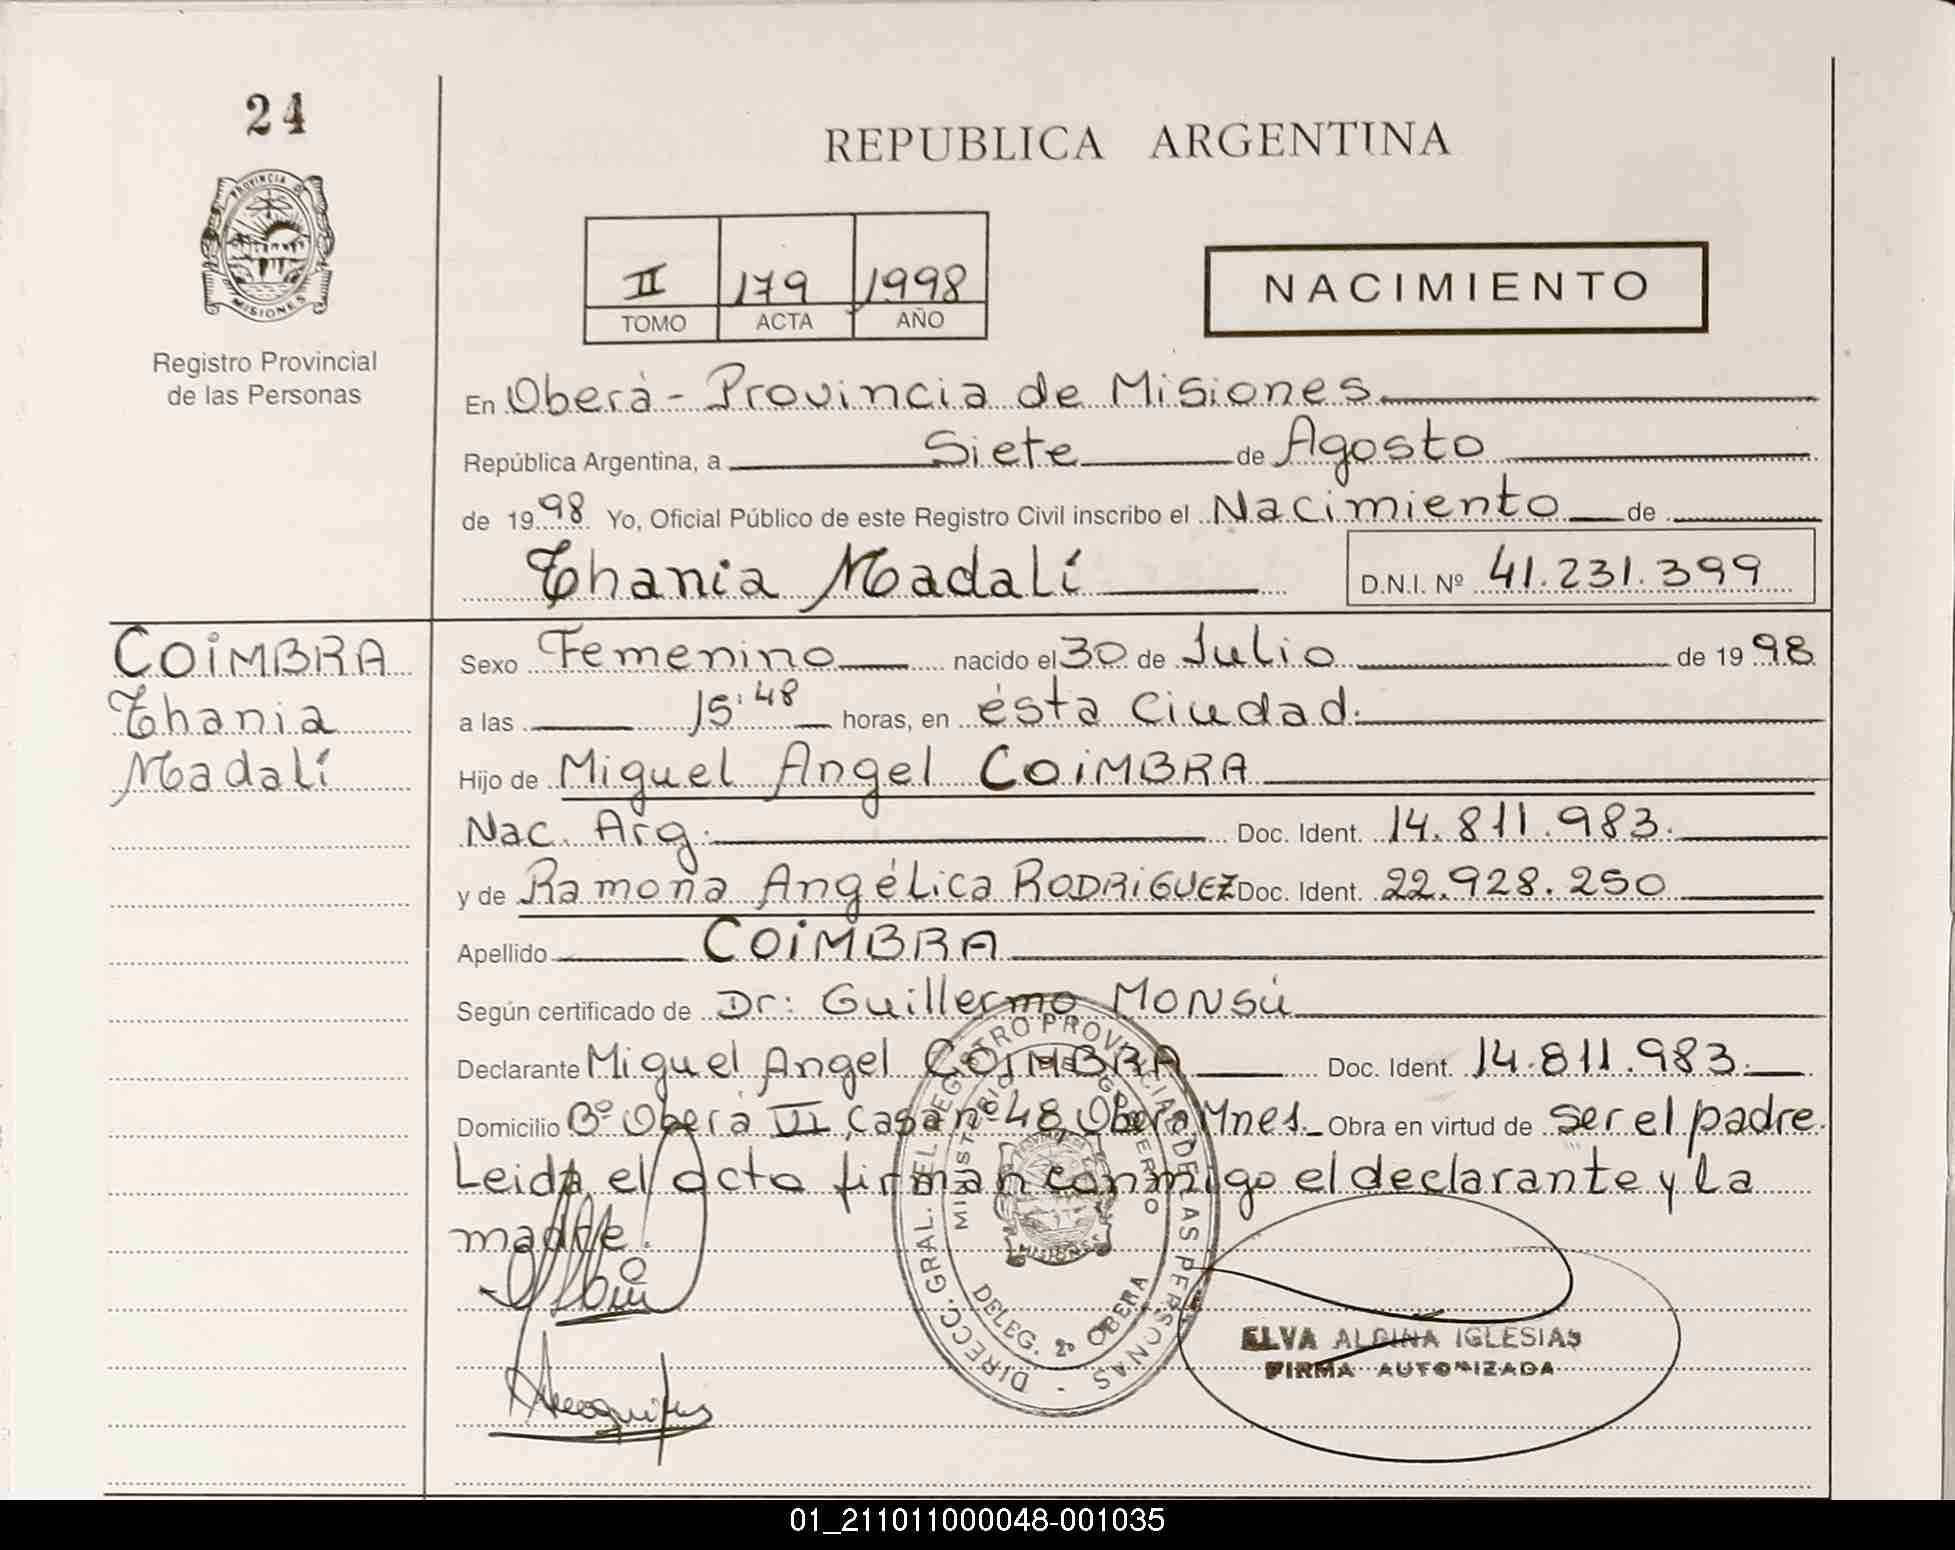 24
REPUBLICA ARGENTINA
PROVINCIA D
MISIONES
II 179 1998
TOMO ACTA AÑO
NACIMIENTO
Registro Provincial
de las Personas
En Oberá - Provincia de Misiones
República Argentina, a Siete de Agosto
de 1998 Yo, Oficial Público de este Registro Civil inscribo el Nacimiento de
Thania Madalí D.N.I. Nº 41.231.399
COIMBRA
Thania
Madalí
Sexo Femenino nacido el 30 de Julio de 1998
a las 15:48 horas, en ésta Ciudad.
Hijo de Miguel Angel COIMBRA
Nac. Arg. Doc. Ident. 14.811.983.
y de Ramona Angélica RODRIGUEZ Doc. Ident. 22.928.250
Apellido COIMBRA
Según certificado de Dr: Guillermo MONSÚ
Declarante Miguel Angel COIMBRA Doc. Ident. 14.811.983.
Domicilio Bº Oberá VI Casa nº 48 Oberá Mnes. Obra en virtud de ser el padre.
Leida el acta firman conmigo el declarante y la
madre.
DIRECC. GRAL. DEL REGISTRO PROVINCIAL DE LAS PERSONAS
MINISTERIO DE GOBIERNO
MISIONES
DELEG. 2º OBERA
ELVA ALBINA IGLESIAS
FIRMA AUTORIZADA
01_211011000048-001035